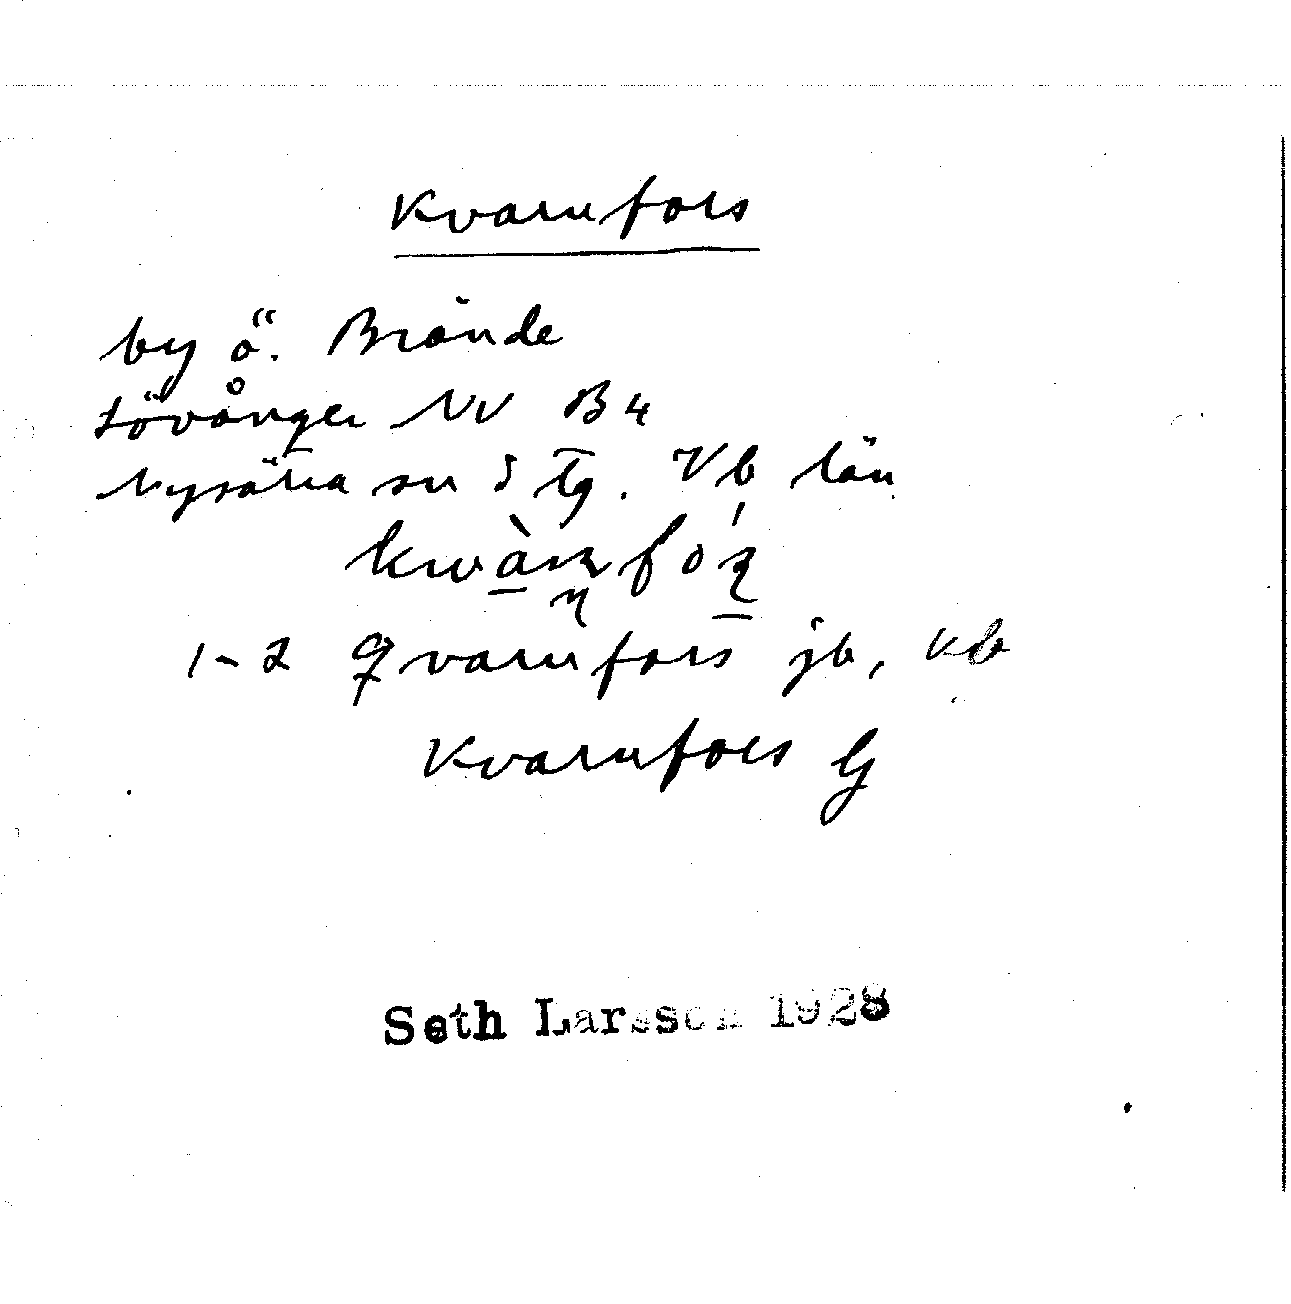 Kvarnfors
by ö. Brände
Lövånger NV B4
Nysätra sn S tg. Vb län
1-2 Qvarnfors jb, kb
Kvarnfors G
Seth Larsson 1928